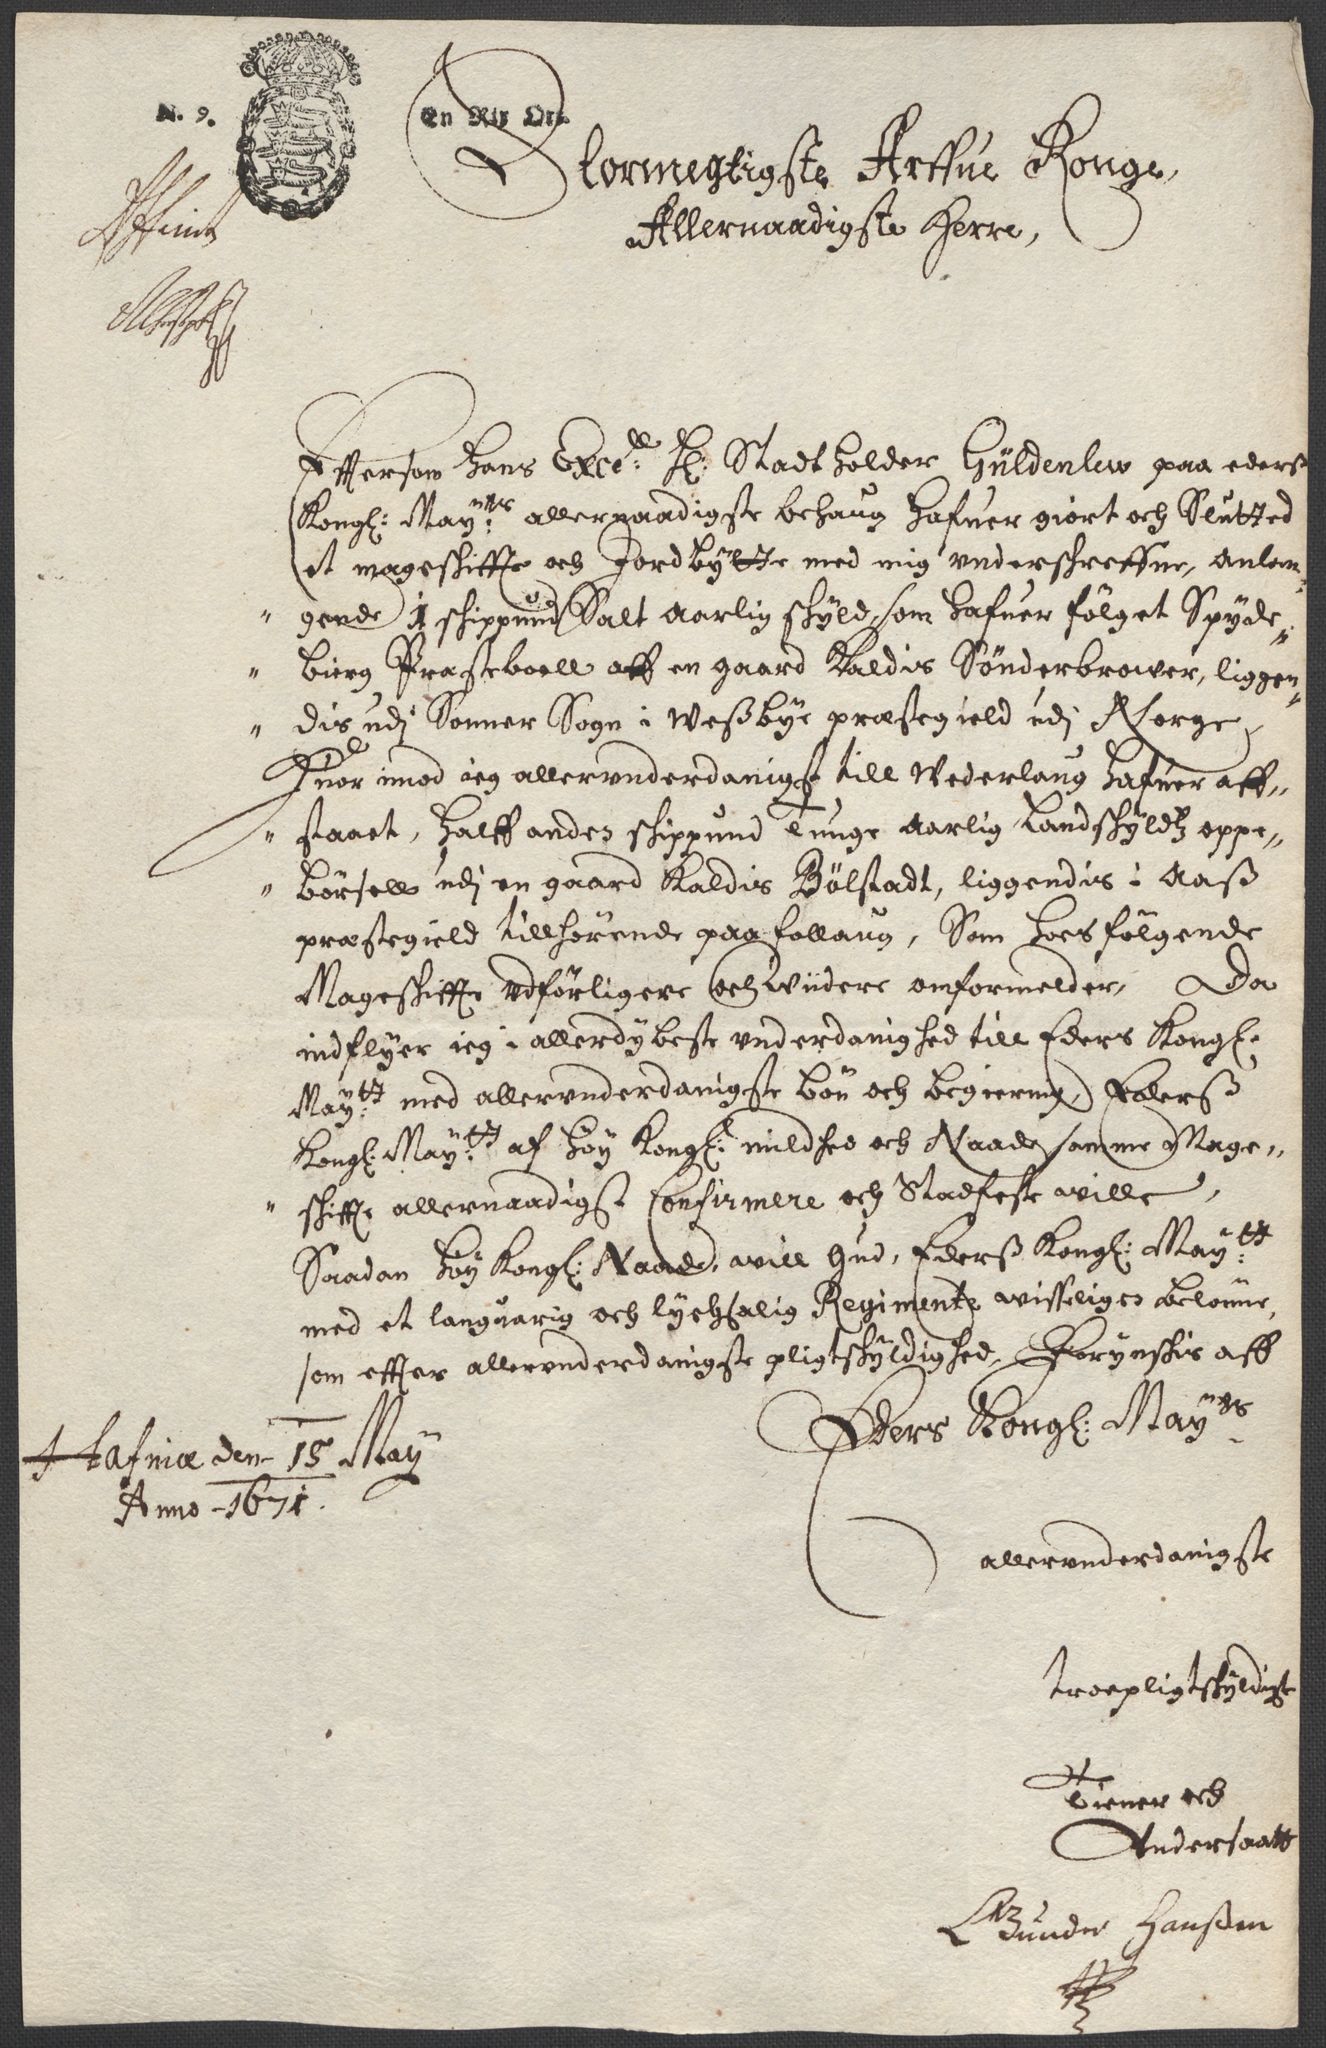 N. 9.
En Rix Ort.
Stormegtigste Arffue Konge,
Allernaadigste Herre,
Efftersom Hans Excell: H: Stadtholder Güldenlew paa eders
Kongl: May:tts allernaadigste behaug hafuer giort och Slutted
et mageskiffte och Jordbytte med mig underschreffne, anlan-
gende 1 schippund Salt aarlig skyld, som hafuer fölget Spyde-
bierg Præsteboell aff en gaard kaldis Sönderbrower, liggen-
dis udj Sonner Sogn i Wessbye præstegield udj Norge,
Huor imod ieg allerunderdanigst till Wederlaug hafuer aff-
staaet, halff anden schippund Tunge aarlig Landskyldtz oppe-
börsell udj en gaard kaldis Bölstadt, liggendis i Aass
præstegield tillhörende paa follaug, Som hoesfölgende
Mageskiffte udförligere och widere omformelder, Da
indflyer ieg i allerdybeste underdanighed till Eders Kongl:
May:tt med allerunderdanigste bön och begiering, Ederss
Kongl: May:tt af höy Kongl: mildhed och Naade samme Mage-
skiffte allernaadigst Confirmere och Stadfeste wille,
Saadan höy Kongl: Naade, will Gud, Ederss Kongl: May:tt
med et languarig och lychsalig Regimente wisseligen belönne,
som effter allerunderdanigste pligtskyldighed, Forynskis aff
Eders Kongl: May:tts
Hafniæ den 15 May
Anno 1671.
allerunderdanigste
troepligtskyldigste
Tiener och
Undersaatt
Hanssen